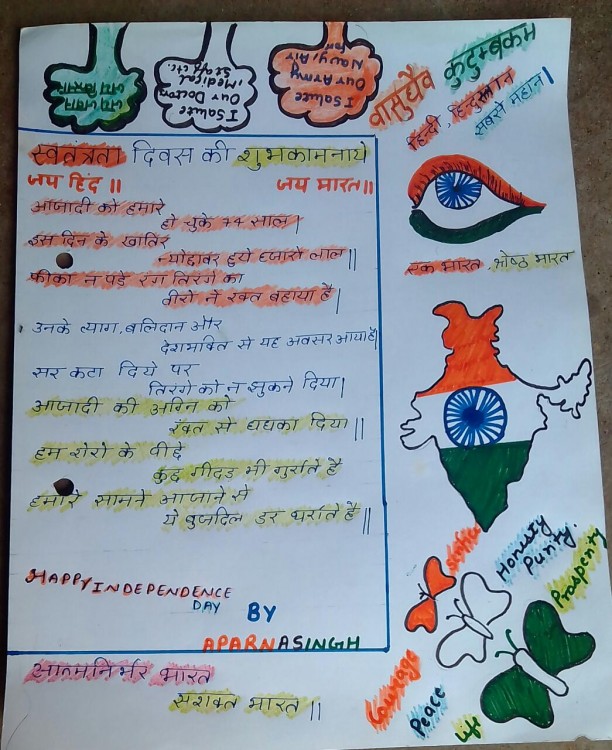 जय जवान
जय किसान
I Salute
Our Doctor
Medical
Staff etc.
I Salute
Our Army
Navy, Air
for
वासुधैव कुटुम्बकम
हिन्दी, हिन्दुस्तान
सबसे महान।
स्वतंत्रता दिवस की शुभकामनाये
जय हिंद ॥
जय भारत॥
आजादी को हमारे
हो चुके 74 साल।
इस दिन के खातिर
न्योछावर हुये हजारो लाल॥
फीका न पड़े रंग तिरंगे का
वीरो ने रक्त बहाया है।
उनके त्याग, बलिदान और
देशभक्ति से यह अवसर आया है।
सर कटा दिये पर
तिरंगे को न झुकने दिया।
आजादी की अग्नि को
रक्त से धधका दिया॥
हम शेरो के पीछे
कुछ गीदड भी गुर्राते है
हमारे सामने आ जाने से
ये बुजदिल डर थर्राते है॥
HAPPY INDEPENDENCE
DAY
BY
APARNA SINGH
एक भारत, श्रेष्ठ भारत
Honesty
Purity.
Prosperity
Courage
Peace
Life
आत्मनिर्भर भारत
सशक्त भारत॥